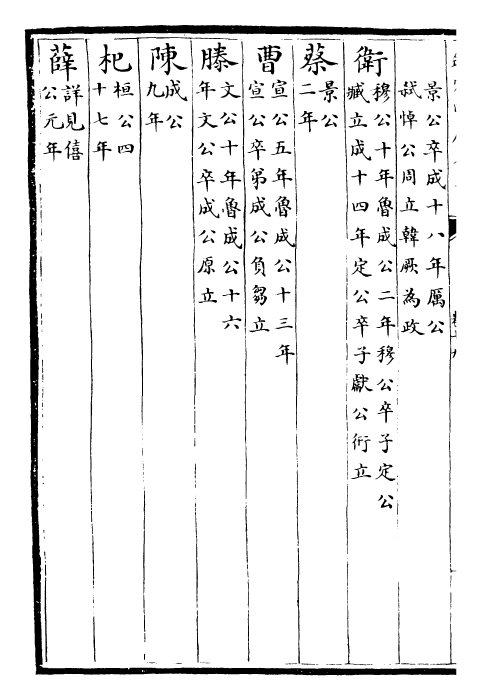 景公卒成十八年厲公
弑悼公周立韓厥為政
衛
穆公十年魯成公二年穆公卒子定公
臧立成十四年定公卒子獻公衎立
蔡
景公
二年
曹
宣公五年魯成公十三年
宣公卒弟成公負芻立
滕
文公十年魯成公十六
年文公卒成公原立
陳
成公
九年
杞
桓公四
十七年
薛
詳見僖
公元年